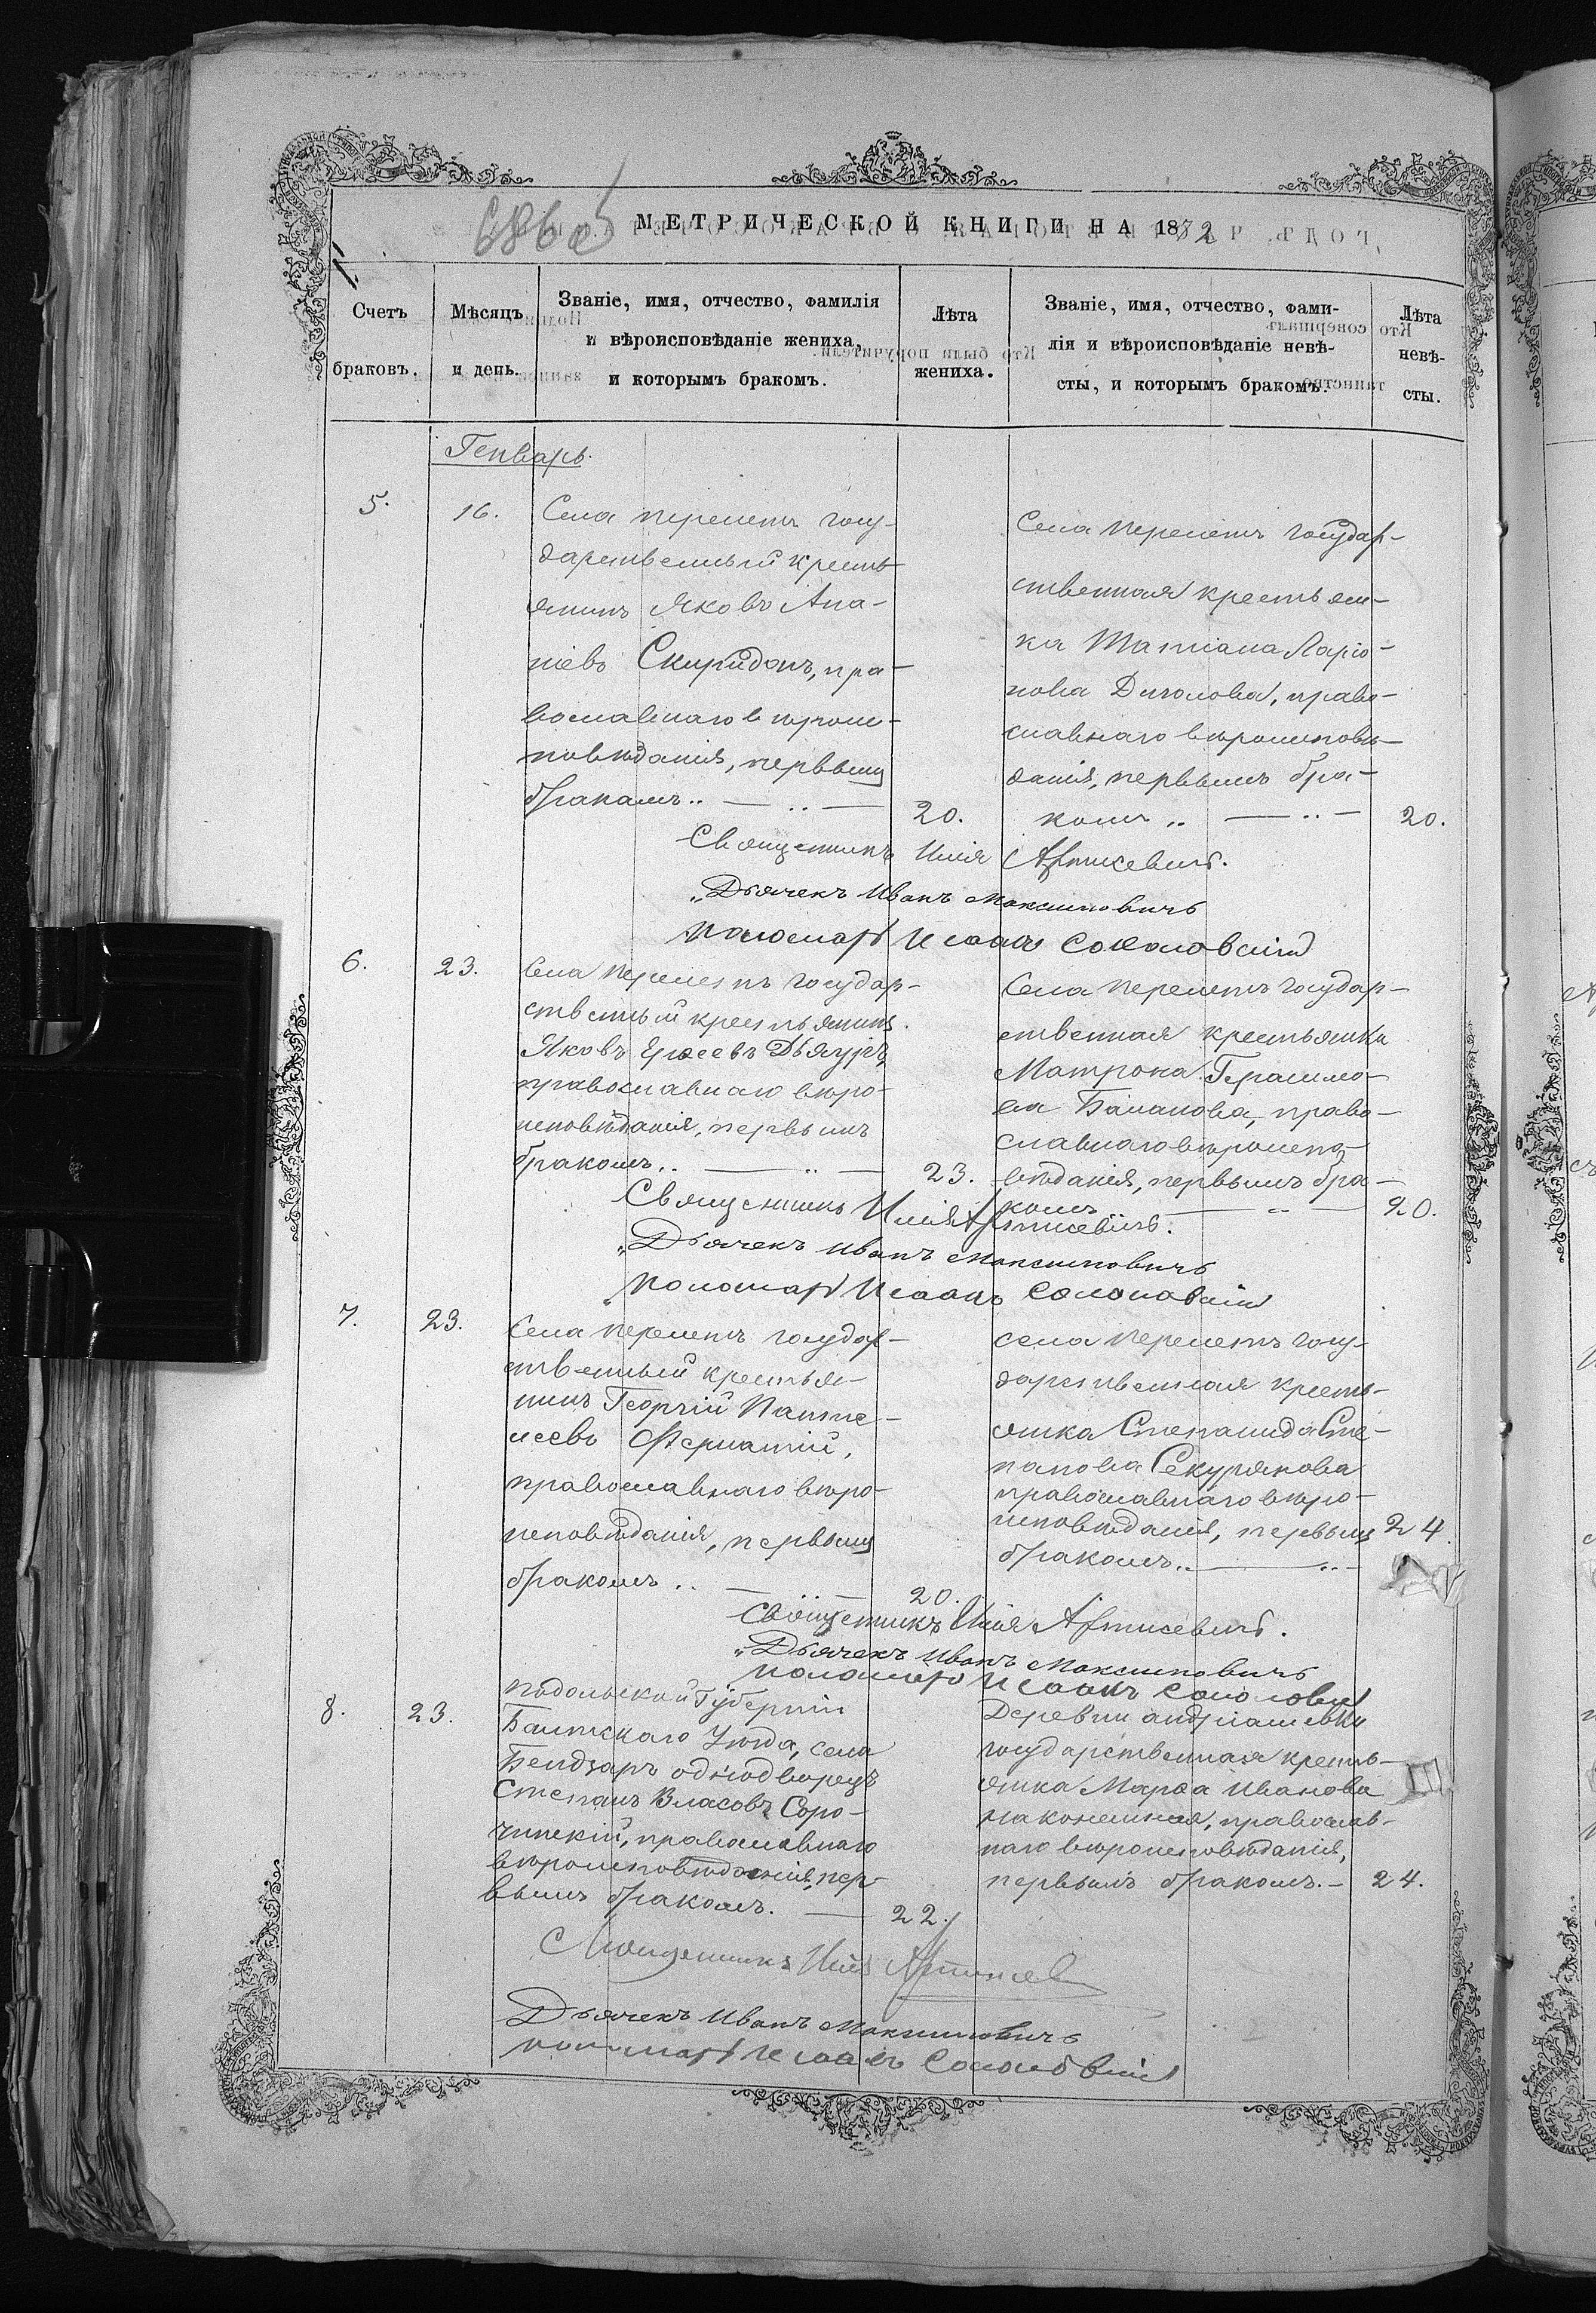 686 об
МЕТРИЧЕСКОЙ КНИГИ НА 1872
Счетъ браковъ.
Мѣсяцъ и день.
Званіе, имя, отчество, фамилія
и вѣроисповѣданіе жениха,
и которымъ бракомъ.
Лѣта жениха.
Званіе, имя, отчество, фами-
лія и вѣроисповѣданіе невѣ-
сты, и которымъ бракомъ.
Лѣта невѣ-
сты.
Генварь.
5.
16.
Села Перелетъ госу-
дарственный кресть
янинъ Яковъ Ана-
ніевъ Спиридонъ, пра-
вославнаго вѣроис-
повѣданія, первымъ
бракомъ.. — .. —
20.
Села Перелетъ государ-
ственная крестьян-
ка Татіана Ларіо-
нова Диголова, право-
славнаго вѣроисповѣ-
данія, первымъ бра-
комъ .. — .. —
20.
Священникъ Илія Артисевичъ.
„Дьячекъ Иванъ Максимовичъ
Пономарь Исаакъ Соколовскій
6.
23.
Села Перелетъ государ-
ственный крестьянинъ
Яковъ Дьячукъ,
православнаго вѣро-
исповѣданія, первымъ
бракомъ.. — .. —
23.
Села Перелетъ государ-
ственная крестьянка
Матрона Герасимо-
ва Баланова, право-
славнаго вѣроиспо-
вѣданія, первымъ бра-
комъ — .. —
20.
Священникъ Илія Артисевичъ.
„Дьячекъ Иванъ Максимовичъ
„Пономарь Исаакъ Соколовскій
7.
23.
Села Перелетъ государ-
ственный крестья-
нинъ Георгій Панте-
леевъ
православнаго вѣро-
исповѣданія, первымъ
бракомъ .. —
20.
села Перелетъ госу-
дарственная кресть-
янка Степанида Сте-
панова Секурянова
православнаго вѣро-
исповѣданія, первымъ
бракомъ.. — .. —
24.
Священникъ Илія Артисевичъ.
„Дьячекъ Иванъ Максимовичъ
„Пономарь Исаакъ Соколовскій
8.
23.
Подольской Губерніи
Балтскаго Уѣзда, села
Бендзаръ однодворецъ
Степанъ Власовъ Соро-
чинскій, православнаго
вѣроисповѣданія, пер-
вымъ бракомъ. —
22.
Деревни Андріашевки
государственная кресть-
янка Марѳа Иванова
Наконешная, православ-
наго вѣроисповѣданія,
первымъ бракомъ. —
24.
Священникъ Илія Артисевичъ
Дьячекъ Иванъ Максимовичъ
пономарь Исаакъ Соколовскій